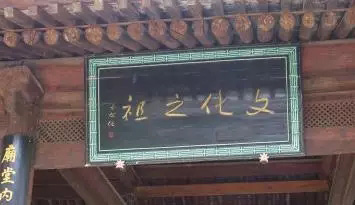 文化之祖
廟堂內